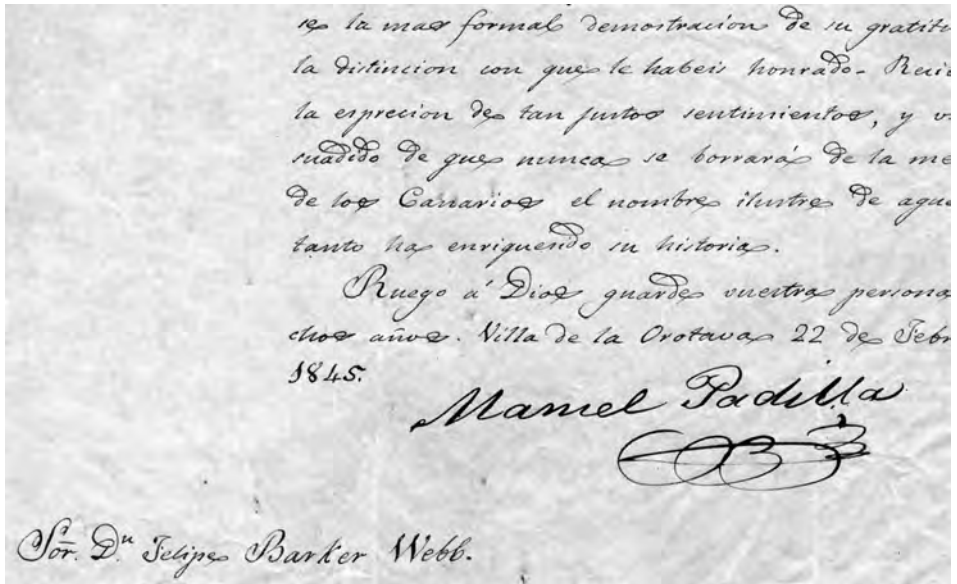 se la mas formal demostracion de su gratitu
la distincion con que le habeis honrado. Reci
la esprecion de tan justos sentimientos, y v
suadido de que nunca se borrará de la me
de los Canarios el nombre ilustre de aque
tanto ha enriquecido su historia.
Ruego á Dios guarde vuestra persona
chos años. Villa de la Orotava 22 de Febr
1845.
Manuel Padilla
Sor. Dn Felipe Barker Webb.